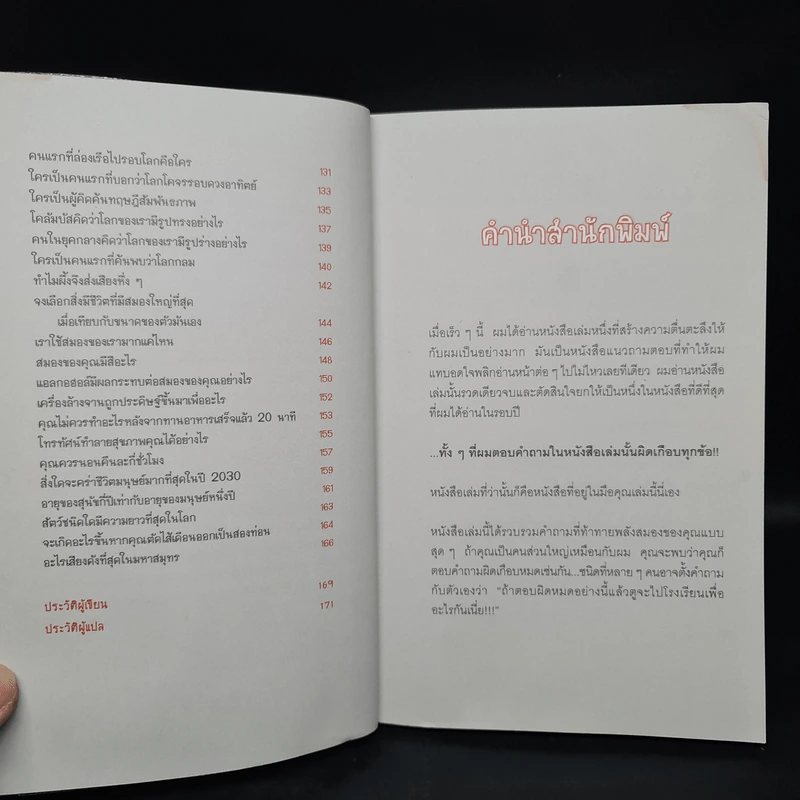 คนแรกที่ล่องเรือไปรอบโลกคือใคร 131
ใครเป็นคนแรกที่บอกว่าโลกโคจรรอบดวงอาทิตย์ 133
ใครเป็นผู้คิดค้นทฤษฎีสัมพันธภาพ 135
โคลัมบัสคิดว่าโลกของเรามีรูปทรงอย่างไร 137
คนในยุคกลางคิดว่าโลกของเรามีรูปร่างอย่างไร 139
ใครเป็นคนแรกที่ค้นพบว่าโลกกลม 140
ทำไมผึ้งจึงส่งเสียงหึ่ง ๆ 142
จงเลือกสิ่งมีชีวิตที่มีสมองใหญ่ที่สุด
เมื่อเทียบกับขนาดของตัวมันเอง 144
เราใช้สมองของเรามากแค่ไหน 146
สมองของคุณมีสีอะไร 148
แอลกอฮอล์มีผลกระทบต่อสมองของคุณอย่างไร 150
เครื่องล้างจานถูกประดิษฐ์ขึ้นมาเพื่ออะไร 152
คุณไม่ควรทำอะไรหลังจากทานอาหารเสร็จแล้ว 20 นาที 153
โทรทัศน์ทำลายสุขภาพคุณได้อย่างไร 155
คุณควรนอนคืนละกี่ชั่วโมง 157
สิ่งใดจะคร่าชีวิตมนุษย์มากที่สุดในปี 2030 159
อายุของสุนัขกี่ปีเท่ากับอายุของมนุษย์หนึ่งปี 161
สัตว์ชนิดใดมีความยาวที่สุดในโลก 163
จะเกิดอะไรขึ้นหากคุณตัดไส้เดือนออกเป็นสองท่อน 164
อะไรเสียงดังที่สุดในมหาสมุทร 166
ประวัติผู้เขียน 169
ประวัติผู้แปล 171
คำนำสำนักพิมพ์
เมื่อเร็ว ๆ นี้ ผมได้อ่านหนังสือเล่มหนึ่งที่สร้างความตื่นตะลึงให้
กับผมเป็นอย่างมาก มันเป็นหนังสือแนวถามตอบที่ทำให้ผม
แทบอดใจพลิกอ่านหน้าต่อ ๆ ไปไม่ไหวเลยทีเดียว ผมอ่านหนังสือ
เล่มนั้นรวดเดียวจบและตัดสินใจยกให้เป็นหนึ่งในหนังสือที่ดีที่สุด
ที่ผมได้อ่านในรอบปี
...ทั้ง ๆ ที่ผมตอบคำถามในหนังสือเล่มนั้นผิดเกือบทุกข้อ!!
หนังสือเล่มที่ว่านั้นก็คือหนังสือที่อยู่ในมือคุณเล่มนี้นี่เอง
หนังสือเล่มนี้ได้รวบรวมคำถามที่ท้าทายพลังสมองของคุณแบบ
สุด ๆ ถ้าคุณเป็นคนส่วนใหญ่เหมือนกับผม คุณจะพบว่าคุณก็
ตอบคำถามผิดเกือบหมดเช่นกัน...ชนิดที่หลาย ๆ คนอาจตั้งคำถาม
กับตัวเองว่า “ถ้าตอบผิดหมดอย่างนี้แล้วตูจะไปโรงเรียนเพื่อ
อะไรกันเนี่ย!!!”